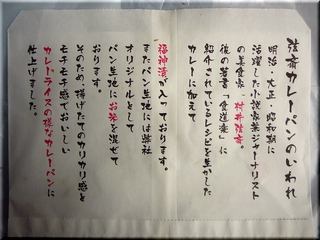 弦斎カレーパンのいわれ
明治・大正・昭和期に
活躍した小説家兼ジャーナリスト
の美食家・村井弦斎。
彼の著書「食道楽」に
紹介されているレシピを生かした
カレーに加えて
福神漬が入っております。
またパン生地には弊社
オリジナルとして
パン生地にお米を混ぜて
おります。
そのため揚げたてのカリカリ感と
モチモチ感でおいしい
カレーライスの様なカレーパンに
仕上げました。